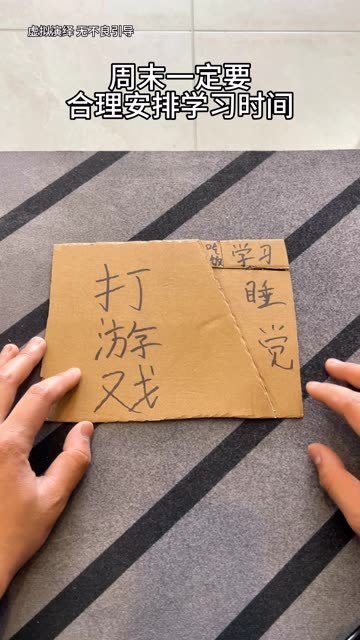 虚拟演绎 无不良引导
周末一定要
合理安排学习时间
吃饭
学习
打游戏
睡觉